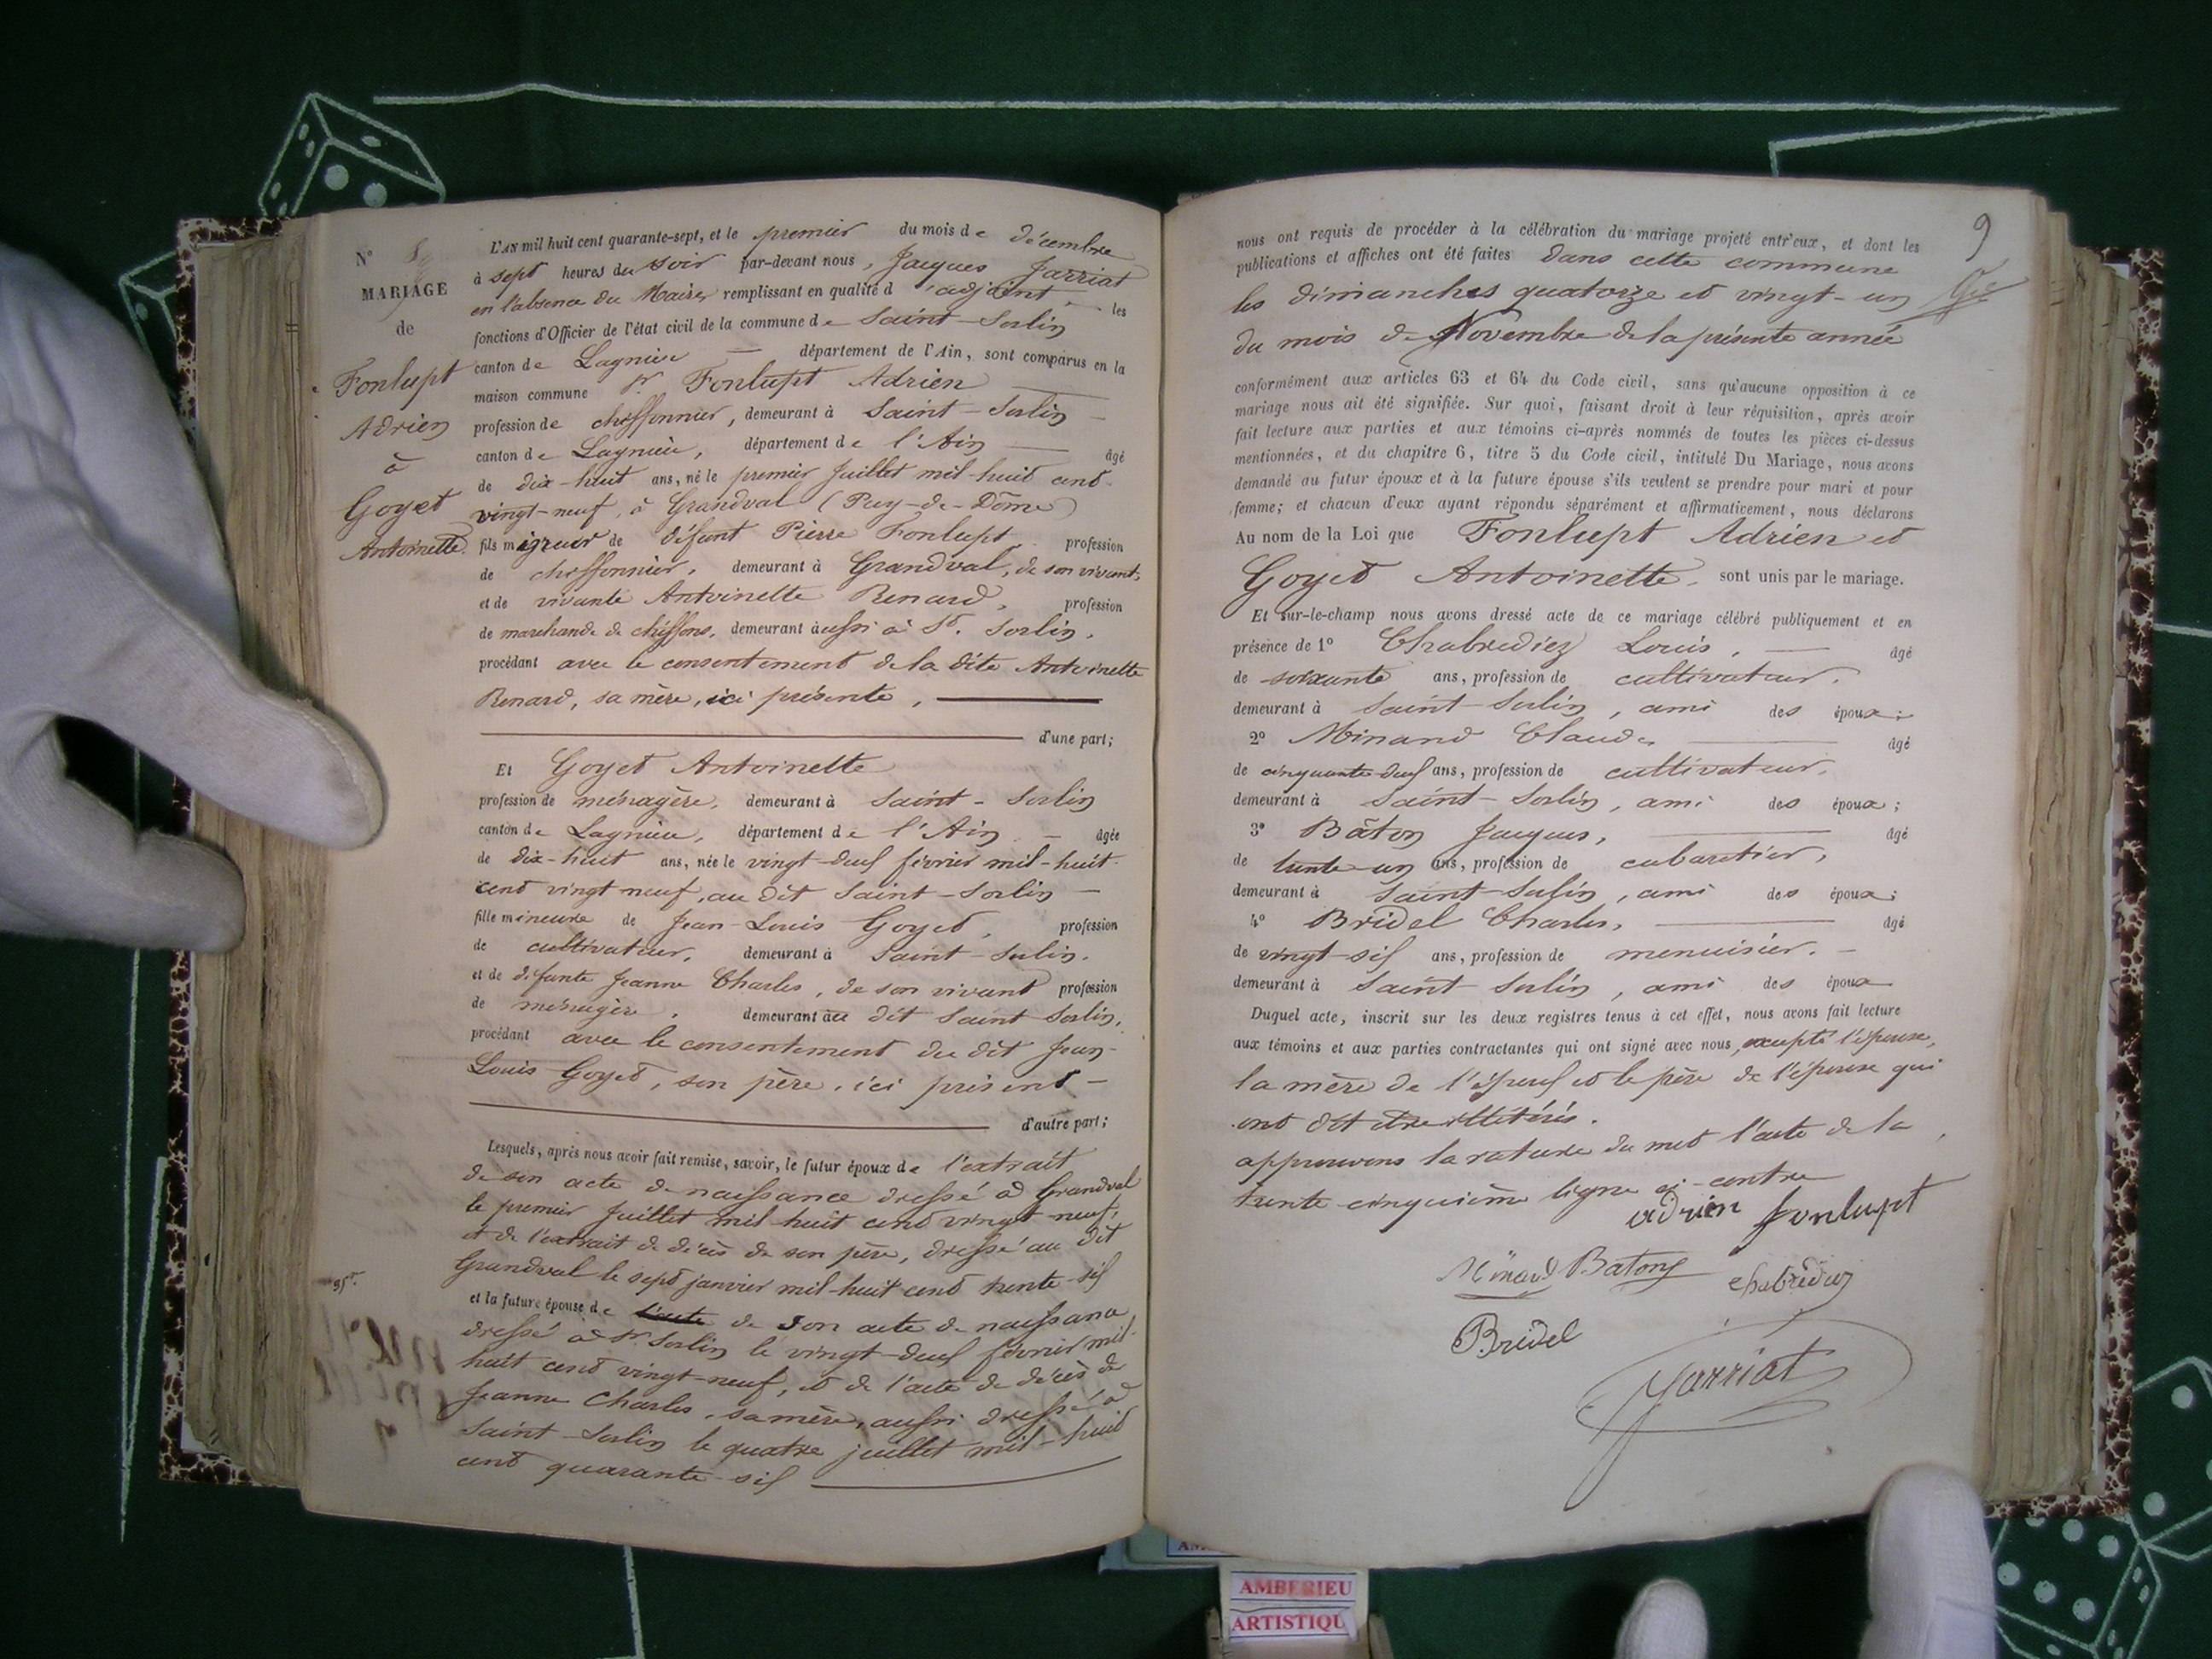 N° 8
MARIAGE
de
Fonlupt
Adrien
à
Goyet
Antoinette.
L'AN mil huit cent quarante-sept, et le premier du mois de décembre
à sept heures du soir par-devant nous, Jacques Jarriat
en l'absence du Maire, remplissant en qualité d'adjoint les
fonctions d'Officier de l'état civil de la commune de Saint-Sorlin
canton de Lagnieu département de l'Ain, sont comparus en la
maison commune Sr Fonlupt Adrien
profession de chiffonnier, demeurant à Saint-Sorlin
canton de Lagnieu, département de l'Ain âgé
de dix-huit ans, né le premier Juillet mil-huit cent
vingt-neuf, à Grandval (Puy-de-Dôme)
fils mineur de défunt Pierre Fonlupt profession
de chiffonnier, demeurant à Grandval, de son vivant,
et de vivante Antoinette Renard, profession
de marchande de chiffons, demeurant aussi à St. Sorlin,
procédant avec le consentement de la dite Antoinette
Renard, sa mère, ici présente,
d'une part;
Et Goyet Antoinette
profession de ménagère, demeurant à Saint-Sorlin
canton de Lagnieu, département de l'Ain âgée
de dix-huit ans, née le vingt-deux février mil-huit-
cent vingt-neuf, au dit Saint-Sorlin
fille mineure de Jean-Louis Goyet, profession
de cultivateur, demeurant à Saint-Sorlin.
et de défunte Jeanne Charles, de son vivant profession
de ménagère, demeurant au dit Saint Sorlin,
procédant avec le consentement du dit Jean-
Louis Goyet, son père, ici présent
d'autre part;
Lesquels, après nous avoir fait remise, savoir, le futur époux de l'extrait
de son acte de naissance dressé à Grandval
le premier Juillet mil-huit cent vingt-neuf,
et de l'extrait de décès de son père, dressé au dit
Grandval le sept janvier mil-huit cent trente-six
35e.
et la future épouse de l'acte de son acte de naissance
dressé à St. Sorlin le vingt-deux février mil-
huit cent vingt-neuf, et de l'acte de décès de
Jeanne Charles, sa mère, aussi dressé à
Saint-Sorlin le quatre juillet mil-huit
cent quarante-six
9
nous ont requis de procéder à la célébration du mariage projeté entr'eux, et dont les
publications et affiches ont été faites dans cette commune
les dimanches quatorze et vingt-un
du mois de Novembre de la présente année
conformément aux articles 63 et 64 du Code civil, sans qu'aucune opposition à ce
mariage nous ait été signifiée. Sur quoi, faisant droit à leur réquisition, après avoir
fait lecture aux parties et aux témoins ci-après nommés de toutes les pièces ci-dessus
mentionnées, et du chapitre 6, titre 5 du Code civil, intitulé Du Mariage, nous avons
demandé au futur époux et à la future épouse s'ils veulent se prendre pour mari et pour
femme; et chacun d'eux ayant répondu séparément et affirmativement, nous déclarons
Au nom de la Loi que Fonlupt Adrien et
Goyet Antoinette, sont unis par le mariage.
Et sur-le-champ nous avons dressé acte de ce mariage célébré publiquement et en
présence de 1° Chabrediez Louis, âgé
de soixante ans, profession de cultivateur,
demeurant à Saint-Sorlin, ami des époux;
2° Minand Claude, âgé
de cinquante-deux ans, profession de cultivateur,
demeurant à Saint-Sorlin, ami des époux;
3° Bâton Jacques, âgé
de trente-un ans, profession de cabaretier,
demeurant à Saint-Sorlin, ami des époux;
4° Bridel Charles, âgé
de vingt-six ans, profession de menuisier.
demeurant à Saint Sorlin, ami des époux
Duquel acte, inscrit sur les deux registres tenus à cet effet, nous avons fait lecture
aux témoins et aux parties contractantes qui ont signé avec nous, excepté l'épouse,
la mère de l'époux et le père de l'épouse qui
ont dit être illétérés.
approuvons la rature du mot l'acte de la
trente cinquième ligne ci-contre
adrien fonlupt
Minand Batons chabrediez
Bridel
Jarriat
AMBERIEU
ARTISTIQU